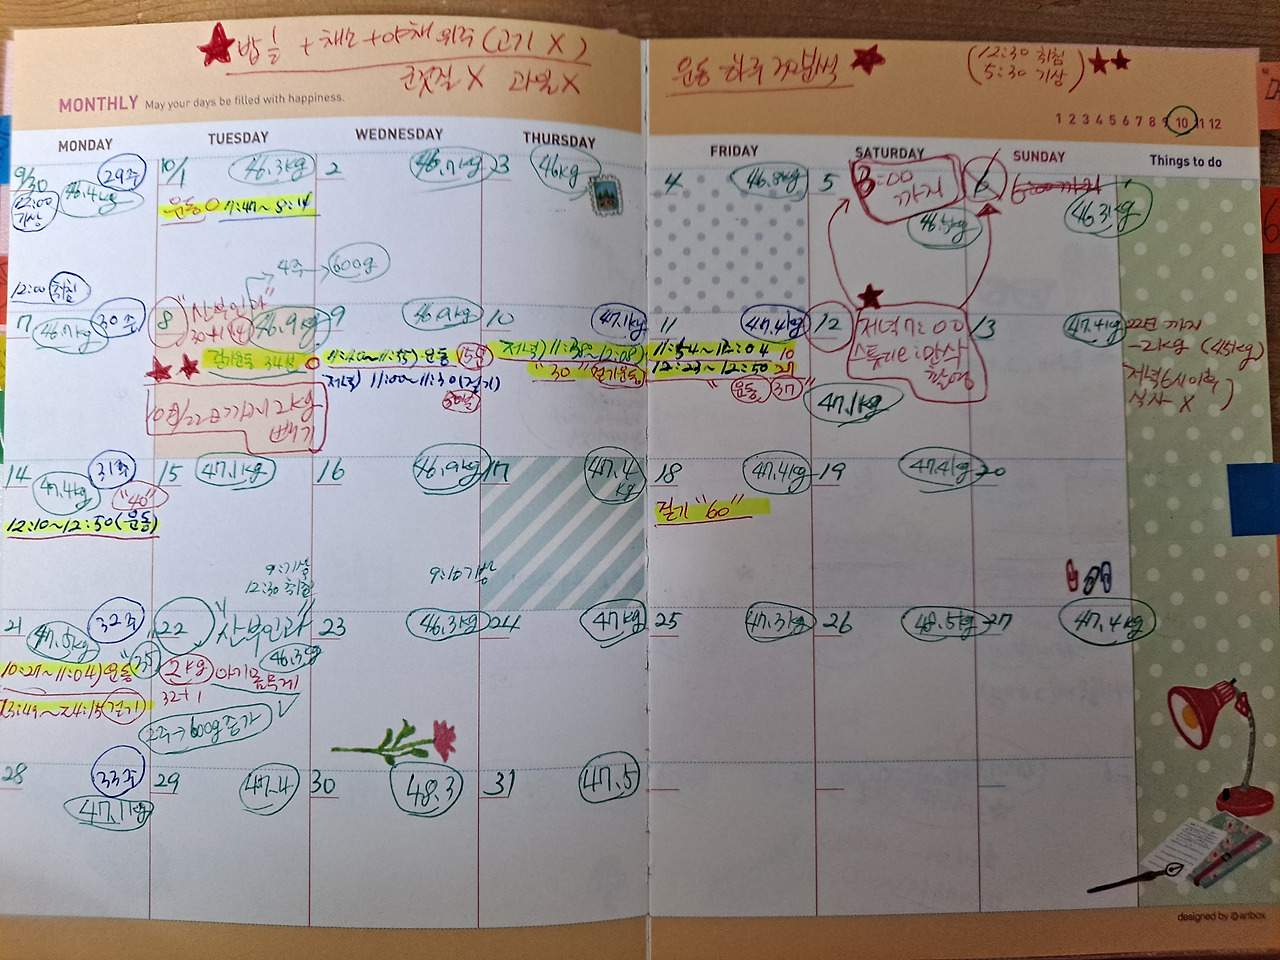 ★밥 ½ + 채소 + 야채 위주 (고기 X)
군것질 X 과일 X
운동 하루 30분씩 ★
(12:30 취침
5:30 기상) ★★
MONTHLY May your days be filled with happiness.
1 2 3 4 5 6 7 8 9 10 11 12
MONDAY TUESDAY WEDNESDAY THURSDAY FRIDAY SATURDAY SUNDAY Things to do
9/30 29주
46.4kg
12:00
기상
12:00 취침
10/1 46.3kg
운동 O 7:47~8:14
2 46.7kg
3 46kg
4 46.8kg
5 3:00
까지
46.5kg
6 6:00 까지
46.3kg
7 30주
46.7kg
4주 → 600g
8 "산부인과"
30+1 46.9kg
걷기운동 34분
10월/22일까지 2kg
빼기
9 46.9kg
11:20~11:35) 운동 15분
저녁) 11:00~11:30 (걷기)
10 47.1kg
저녁) 11:38~12:08)
"30" 걷기운동
11 47.4kg
11:54~12:04 10
12:23~12:50 27
"운동 37"
12 저녁 7:00
스튜디오 만삭
촬영
47.1kg
13 47.4kg
22일 까지
-2kg (45kg)
저녁 6시 이후
식사 X
14 31주
47.4kg
"40"
12:10~12:50 (운동)
15 47.1kg
9:기상
12:30 취침
16 46.9kg
9:10 기상
17 47.4
kg
18 47.4kg
걷기 "60"
19 47.4kg
20
21 32주
47.5kg
10:27~11:04) 운동 "35
23:49~24:15 걷기
22 "산부인과"
46.3kg
2kg 아기몸무게
32+1
2주→600g 증가
23 46.3kg
24 47kg
25 47.3kg
26 48.5kg
27 47.4kg
28 33주
47.7kg
29 47.4
30 48.3
31 47.5
designed by artbox